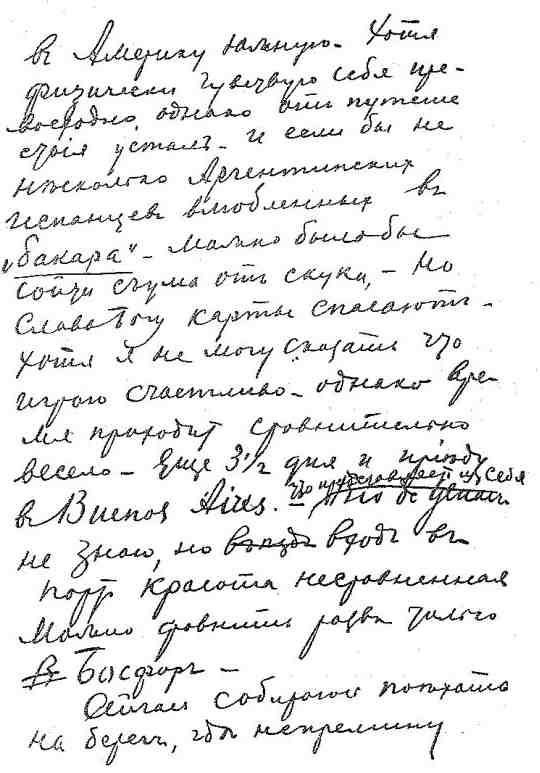 въ Америку Южную. Хотя
физически чувствую себя пре-
восходно, однако отъ путеше
ствія усталъ. И если бы не
нѣсколько Аргентинскихъ
испанцевъ влюбленныхъ въ
„бакара" – можно было бы
сойти съ ума отъ скуки, – Но
слава Богу карты спасаютъ –
хотя я не могу сказать что
играю счастливо – однако вре-
мя проходитъ сравнительно
весело – Еще 3 1/2 дня и пріѣду
что представляетъ изъ себя
въ Buenos Aires. –
не знаю, но въѣздъ входъ въ
портъ красота несравненная
Можно сравнить развѣ только
въ Босфоръ –
Сейчасъ собираюсь поѣхать
на берегъ, гдѣ непремину